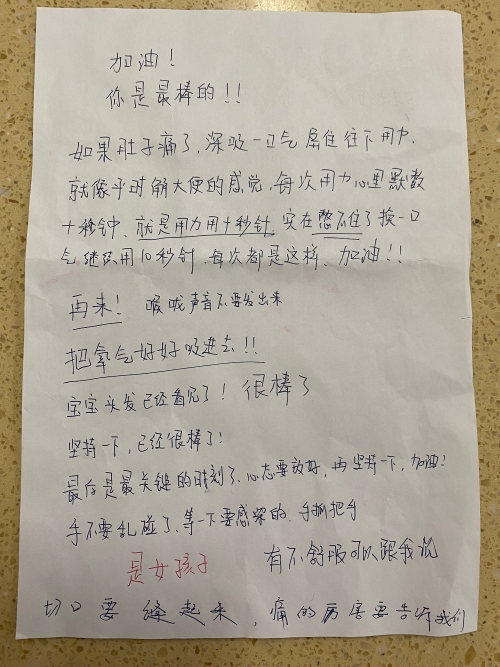 加油！
你是最棒的！！
如果肚子痛了，深吸一口气屏住往下用力，
就像平时解大便的感觉，每次用力心里默数
十秒钟、就是用力用十秒针，实在憋不住了换一口
气继续用10秒针，每次都是这样、加油！！
再来！ 喉咙声音不要发出来
把氧气好好吸进去！！
宝宝头发已经看见了！ 很棒了
坚持一下，已经很棒了！
最后是最关键的时刻了、心态要放好，再坚持一下，加油！
手不要乱碰了、等一下要感染的、手抓把手
是女孩子 有不舒服可以跟我说
切口要缝起来，痛的厉害要告诉我们